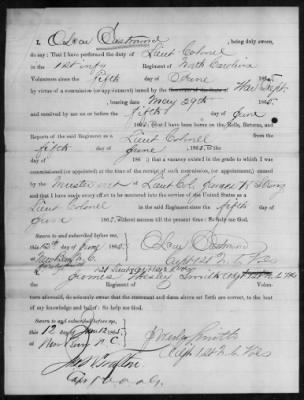 I, O. Low Eastmond, being duly sworn,
do say: That I have performed the duty of Lieut Colonel
in the 1st infy Regiment of North Carolina
Volunteers since the fifth day of June 1865
by virtue of a commission (or appointment) issued by the War Dept.
, bearing date May 29th 1865.
and received by me on or before the fifth day of June
1865; that I have been borne on the Rolls, Returns, and
Reports of the said Regiment as a Lieut Colonel since the
fifth day of June, 1865, to the
day of 186 ; that a vacancy existed in the grade to which I was
commissioned (or appointed) at the time of the receipt of such commission, (or appointment) caused
by the Muster out of Lieut Col. James
and that I have made every effort to be mustered into the service of the United States as a
Lieut Colonel in the said Regiment since the fifth day of
June 1865, without success till the present time: So help me God.
Sworn to and subscribed before me,
this 12th day of June 1865.
Newbern N.C.
Capt 1st N.C. Vols
I, James Wesley Smith Capt 1st N.C. Vols
Regiment of Vol-
unteers aforesaid, do solemnly swear that the statement and dates above set forth are correct, to the best
of my knowledge and belief: So help me God.
Sworn to and subscribed before me,
this 12 day June 1865.
New Bern N.C.
J Wesley Smith
Capt 1st N.C. Vols